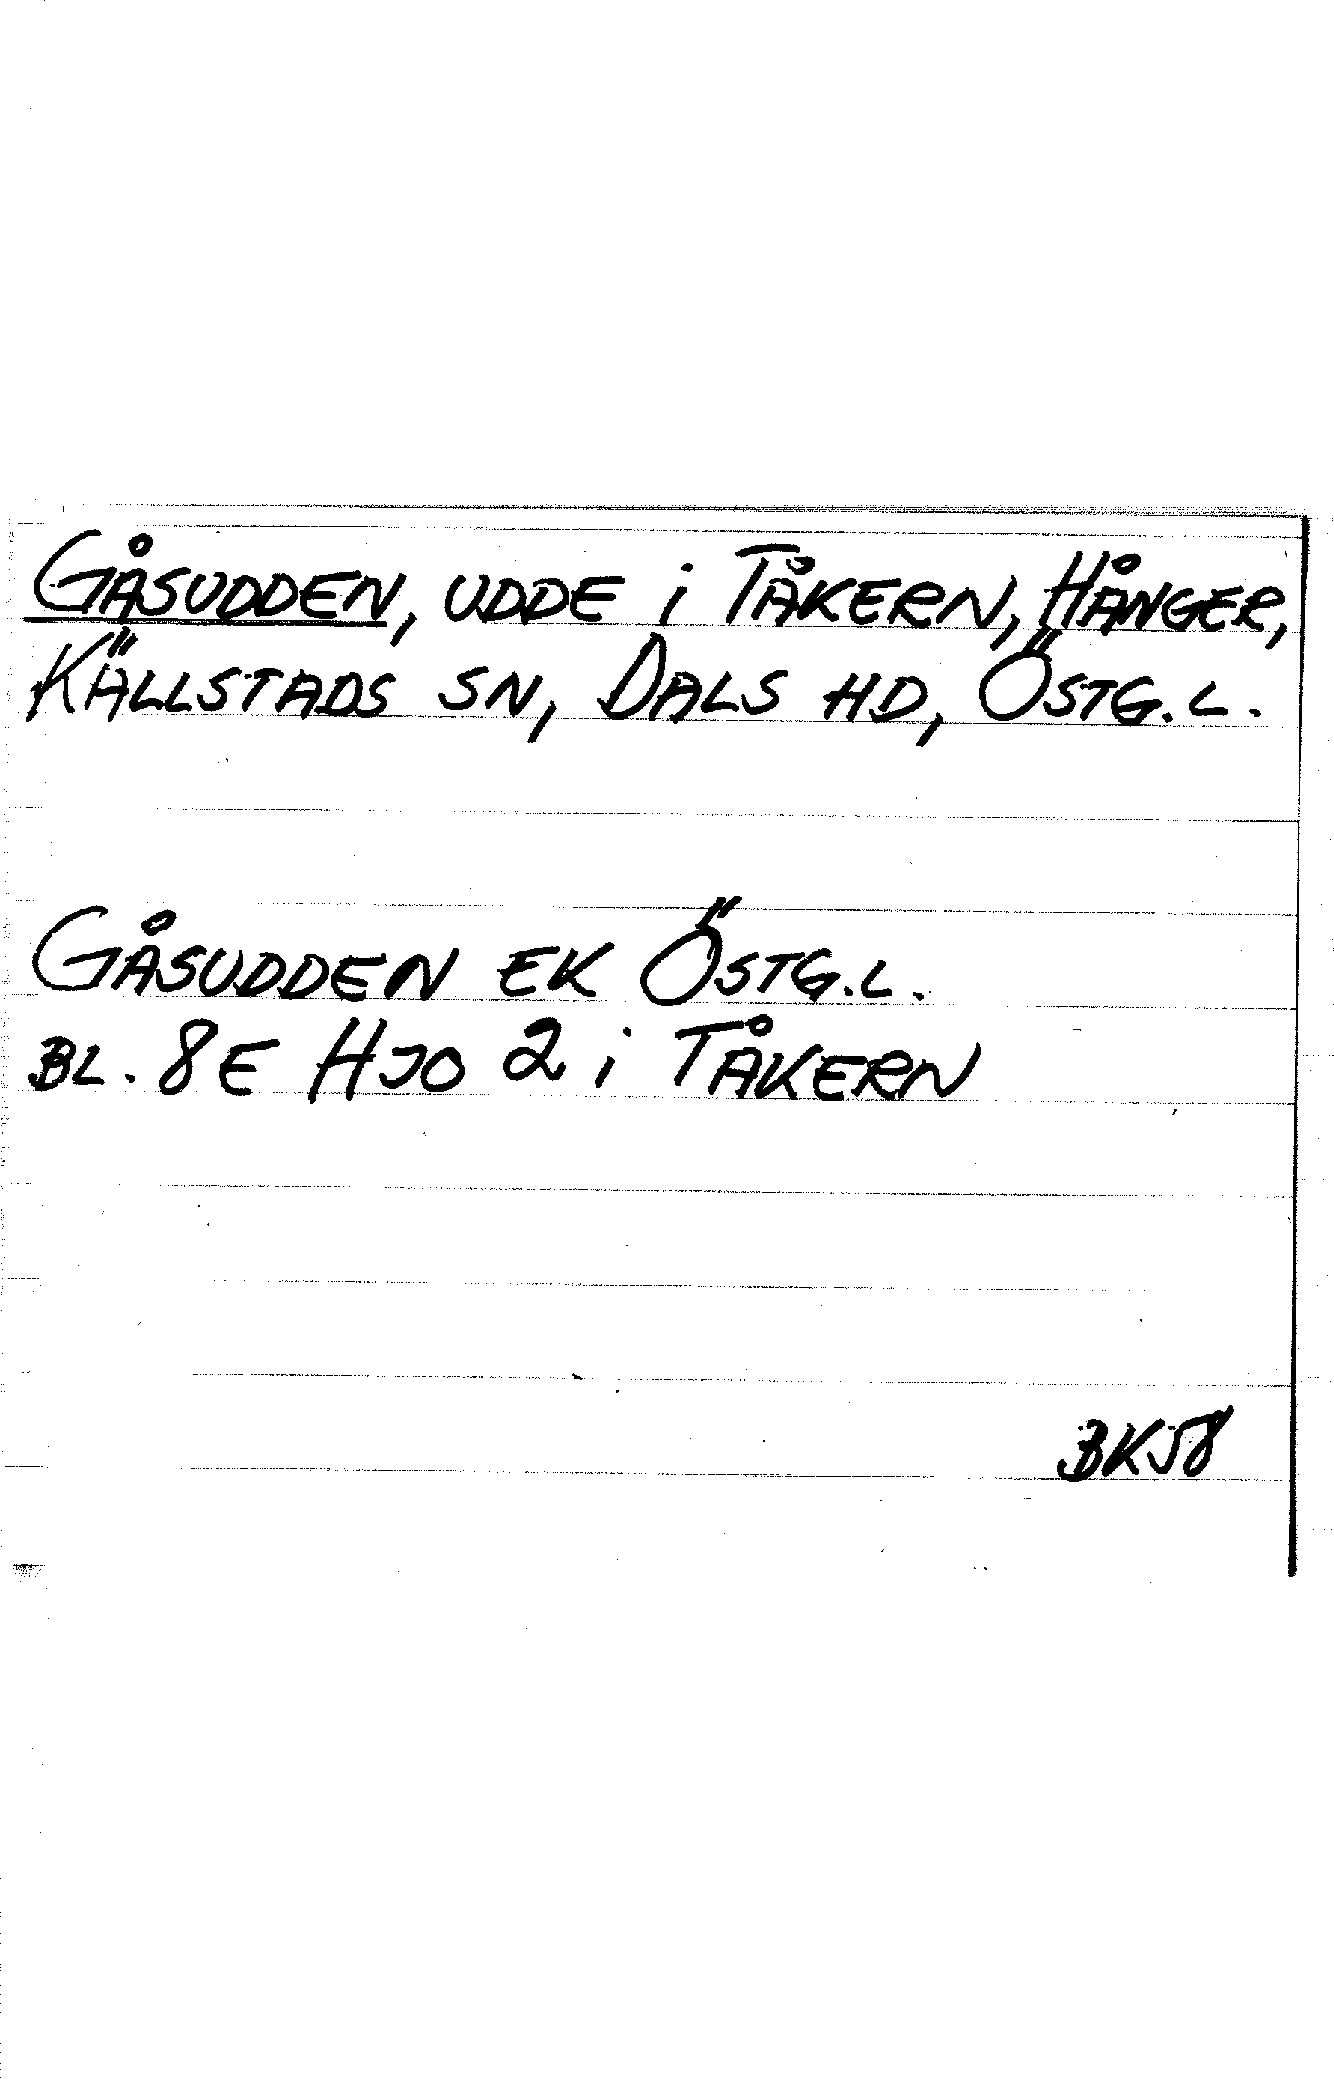 GÅSUDDEN, UDDE i TÅKERN, HÅNGER,
KÄLLSTADS SN, DALS HD, ÖSTG.L.
GÅSUDDEN EK ÖSTG.L.
BL. 8E HJO 2 i TÅKERN
BK58